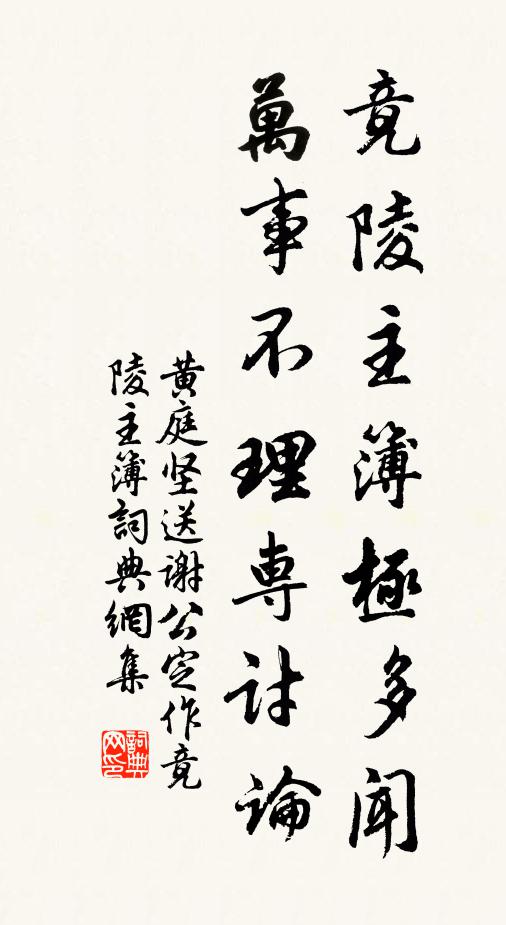 竟陵主簿極多聞
萬事不理専討論
黄庭坚送谢公定作竟
陵主簿詞典網集
詞典
网印